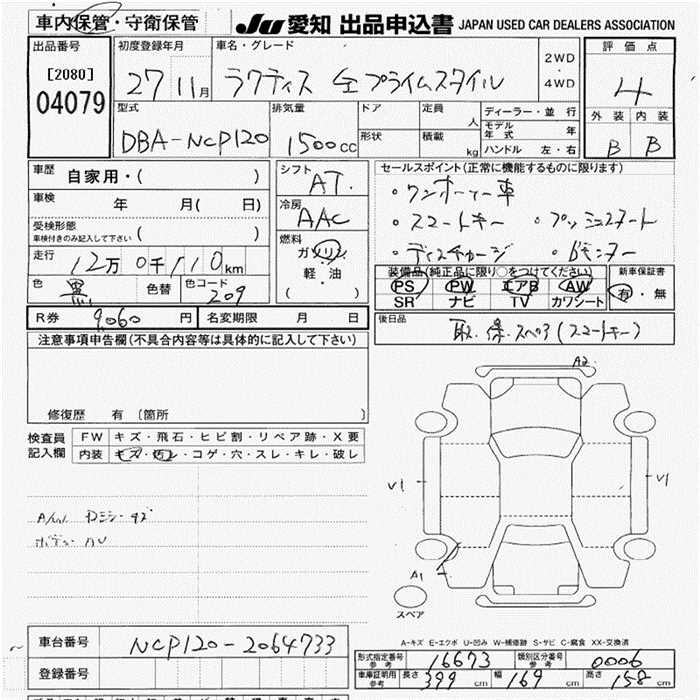 車内保管・守衛保管 JU 愛知 出品申込書 JAPAN USED CAR DEALERS ASSOCIATION
出品番号 初度登録年月 車名・グレード 2WD・4WD 評価点
[2080] 27 11月 ラクティス G プライムスタイル 4
04079 外装 内装
型式 排気量 ドア 定員 人 ディーラー・並行 B B
DBA-NCP120 1500cc 形状 積載 kg モデル年式 年
ハンドル 左・右
車歴 自家用・( ) シフト AT. セールスポイント(正常に機能するものに限ります)
車検 年 月( 日) 冷房 AAC ・ワンオーナー車
受検形態 車検付きのみ記入して下さい ( ) ・スマートキー ・プッシュスタート
走行 12万0千110km 燃料 ガソリン・軽・油 ( ) ・ディスチャージ ・Bモニター
色 黒 色替 色コード 209 装備品(純正品に限り○をつけてください) 新車保証書
PS PW エアB AW 有・無
SR ナビ TV カワシート
R券 9,060円 名変期限 月 日 後日品
取.保.スペア(スマートキー)
注意事項申告欄(不具合内容等は具体的に記入して下さい)
修復歴 有 [箇所 ]
A2
検査員記入欄 FW キズ・飛石・ヒビ割・リペア跡・X要
内装 キズ・汚レ・コゲ・穴・スレ・キレ・破レ
V1 V1
ボディー AU
A1
スペア
A-キズ E-エクボ U-凹み W-補修跡 S-サビ C-腐食 XX-交換済
車台番号 NCP120-2064733
登録番号
形式指定番号 参考 16673 類別区分番号 参考 0006
車庫証明用 参考 長さ 399 cm 幅 169 cm 高さ 158 cm